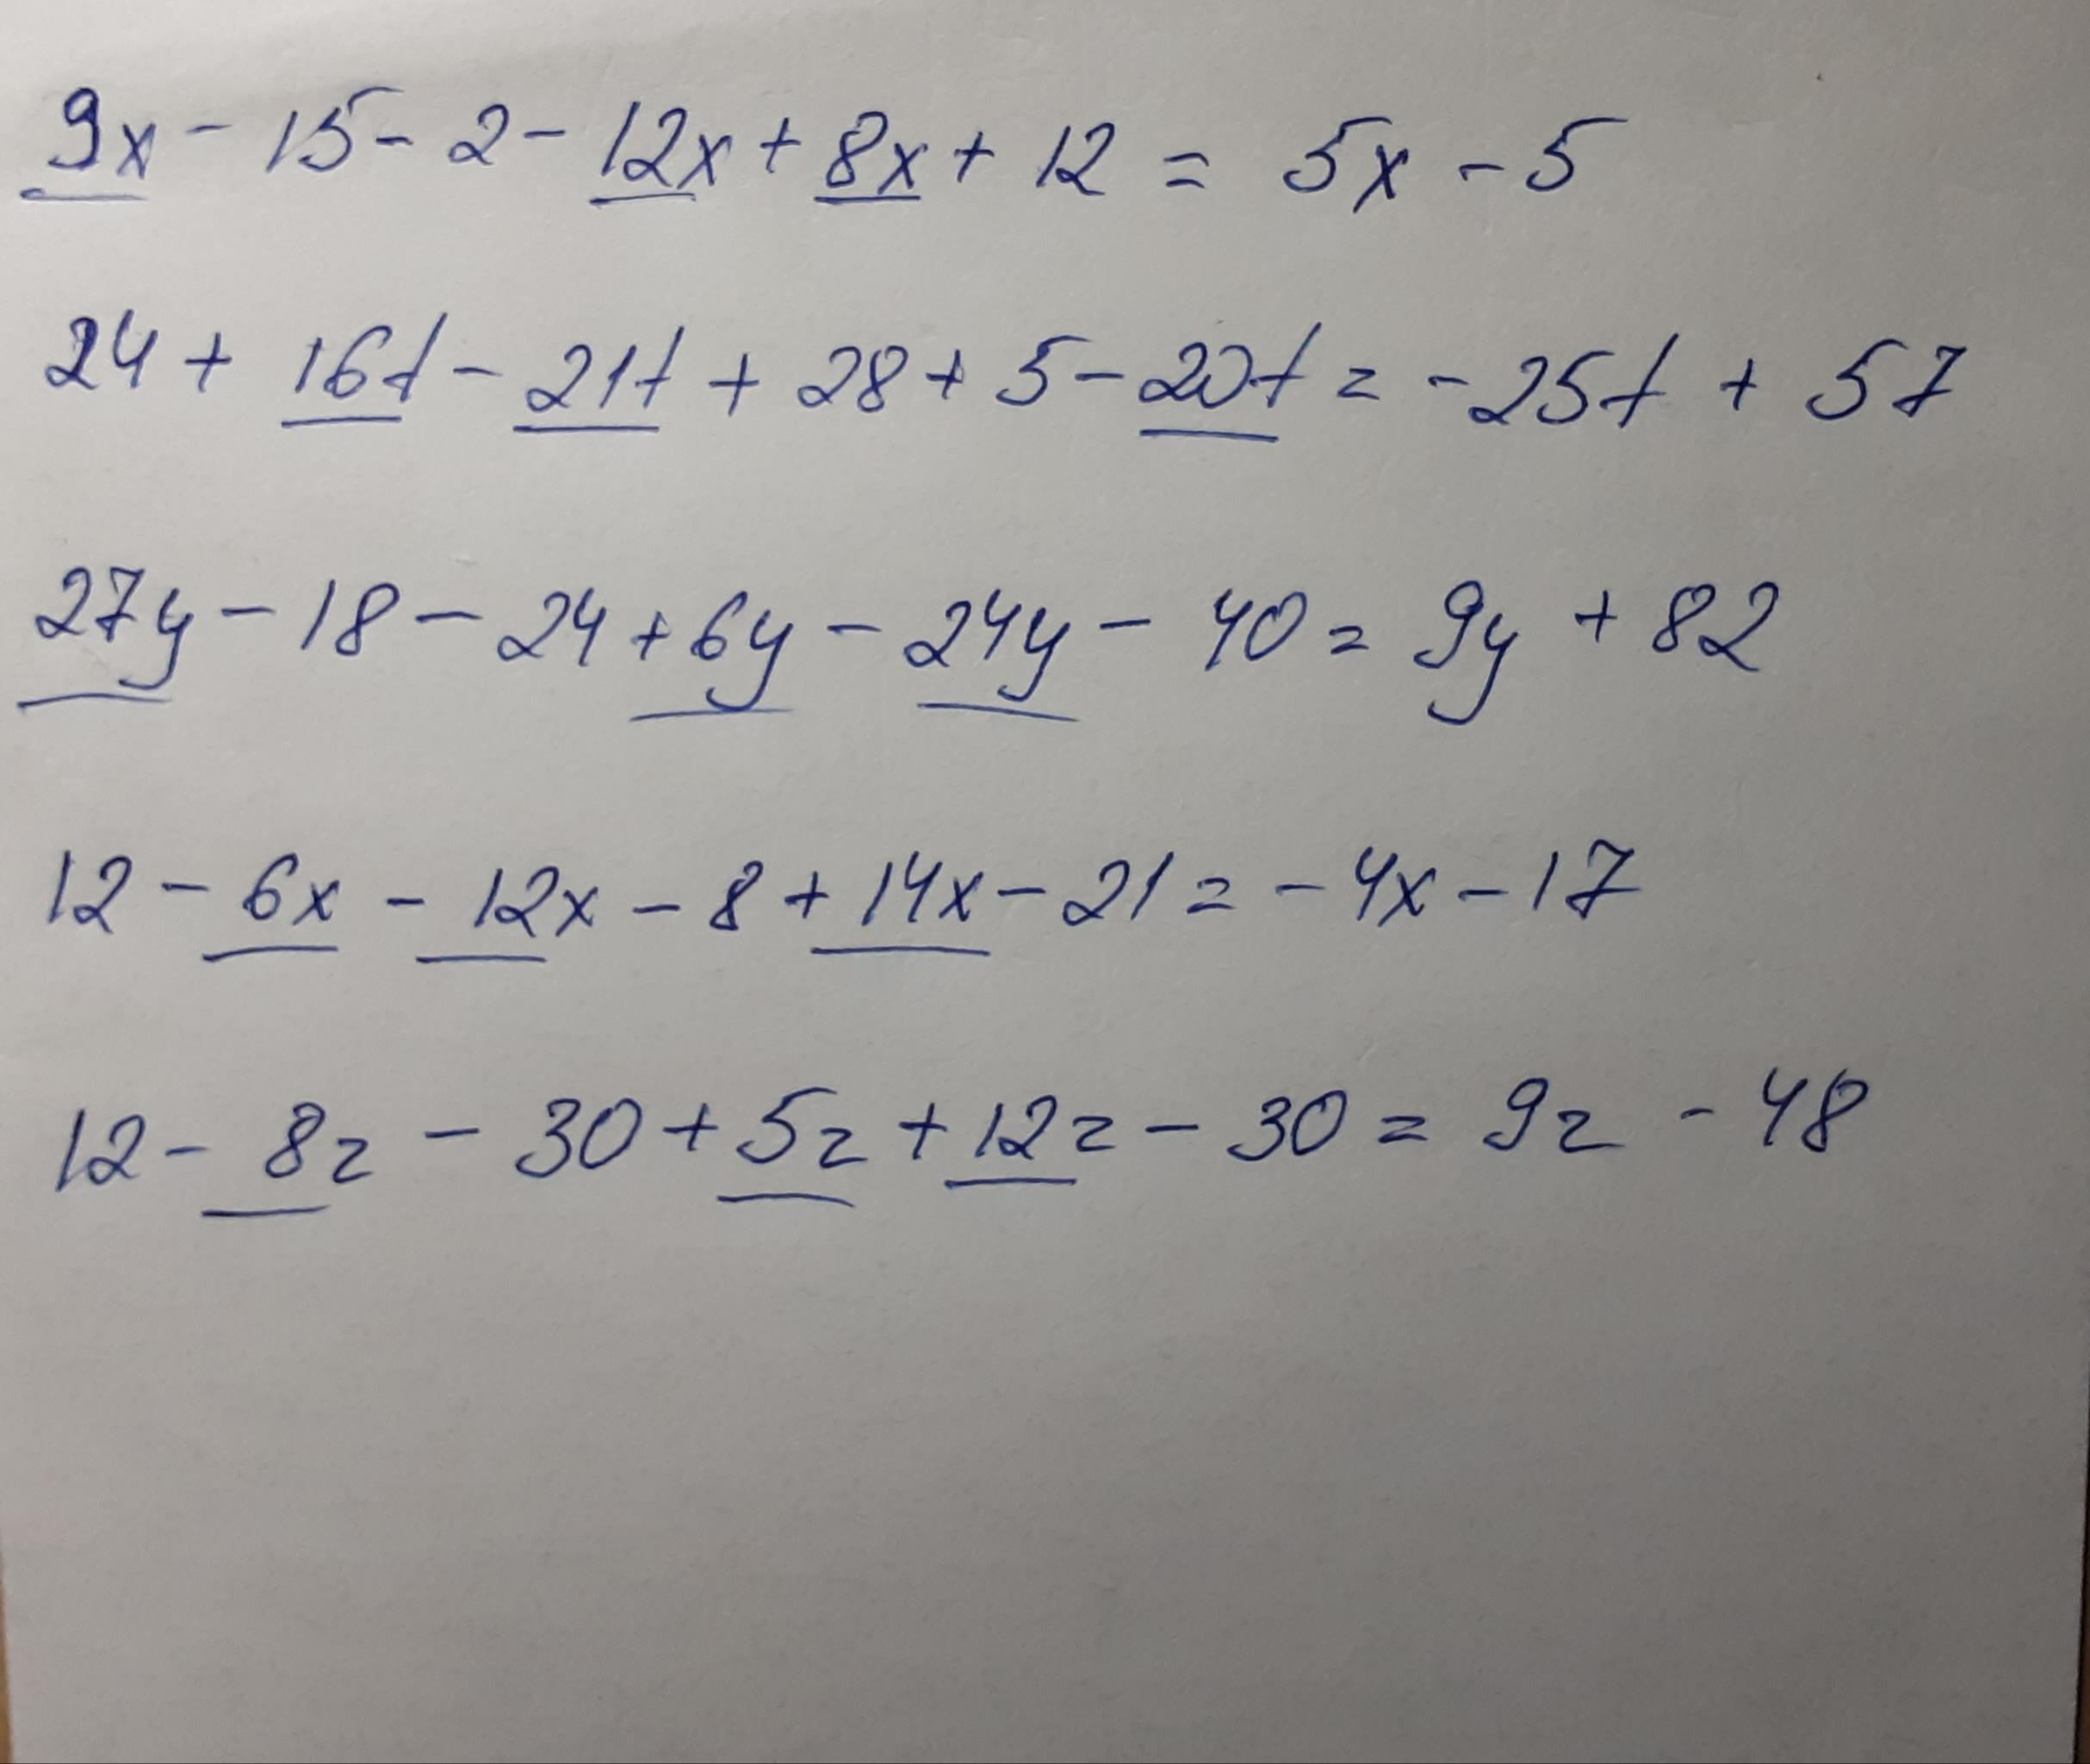 9x - 15 - 2 - 12x + 8x + 12 = 5x - 5
24 + 16t - 21t + 28 + 5 - 20t = -25t + 57
27y - 18 - 24 + 6y - 24y - 40 = 9y + 82
12 - 6x - 12x - 8 + 14x - 21 = -4x - 17
12 - 8z - 30 + 5z + 12z - 30 = 9z - 48